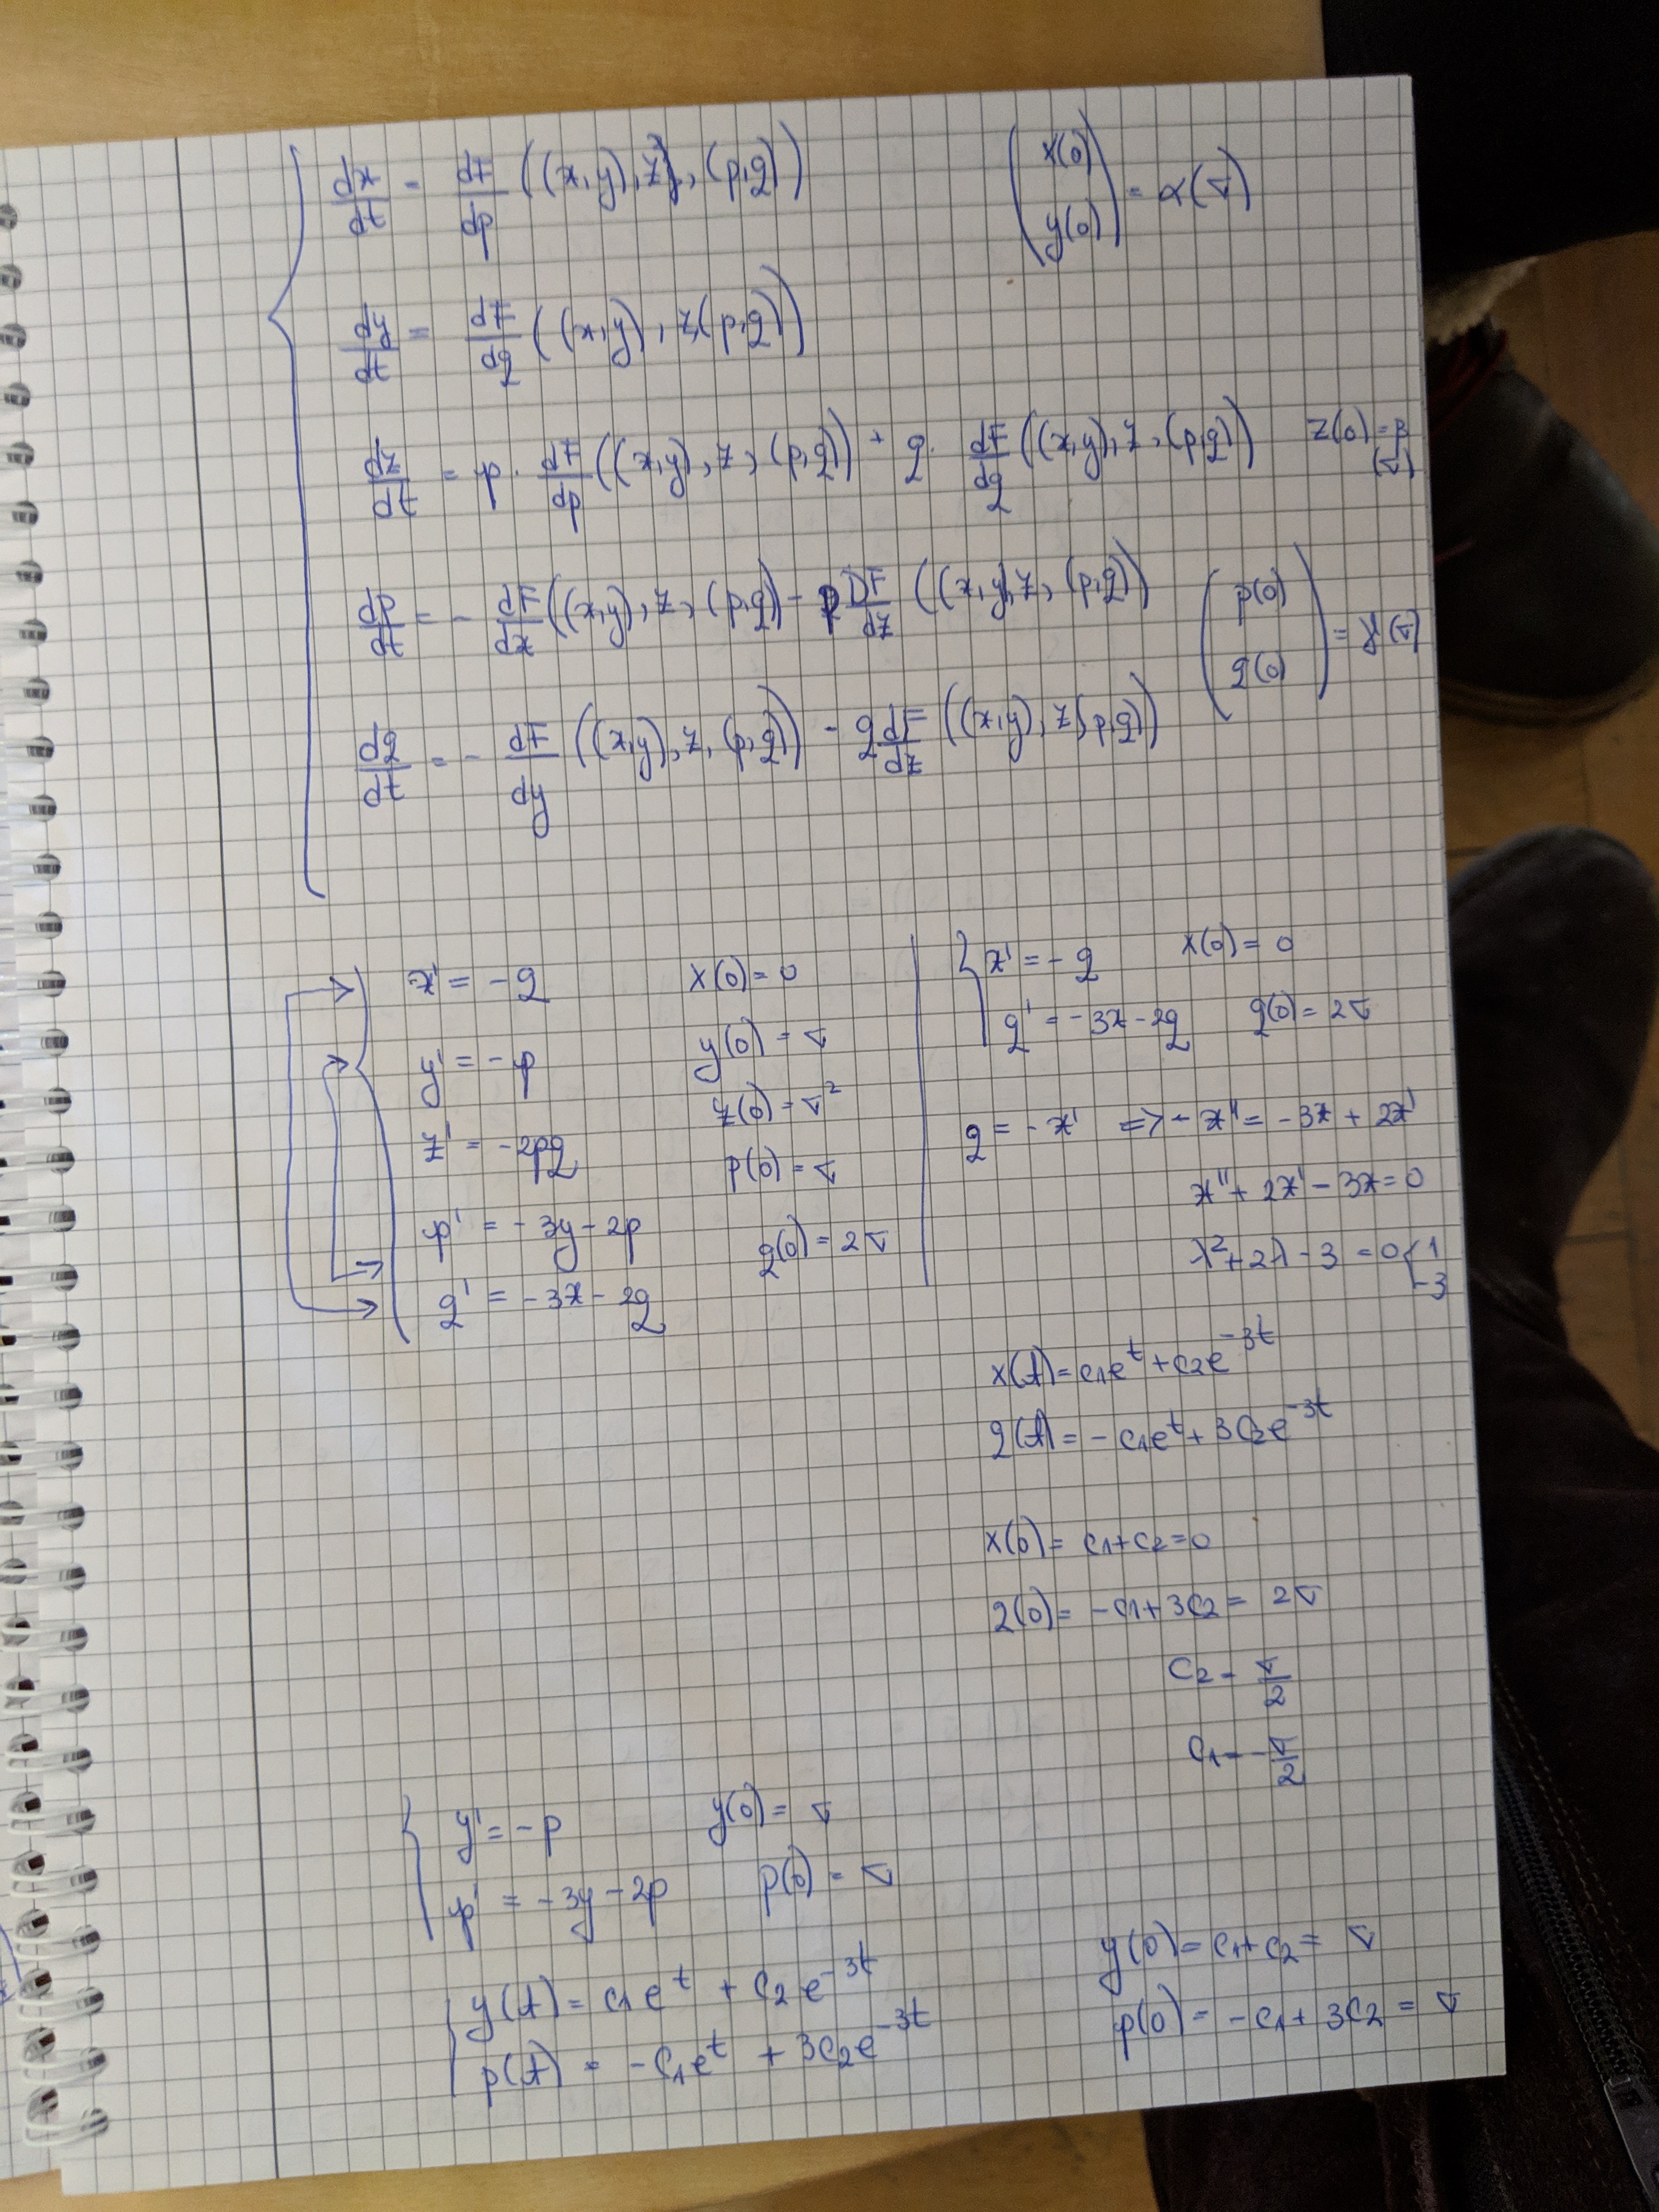 dx/dt = dF/dp ((x,y),z), (p,q)) (x(0) y(0)) = α(σ)
dy/dt = dF/dq ((x,y), z,(p,q))
dz/dt = p · dF/dp ((x,y), z, (p,q)) + q · dF/dq ((x,y), z, (p,q)) z(0) = β(σ)
dp/dt = - dF/dx ((x,y), z, (p,q)) - p DF/dz ((x,y), z, (p,q)) (p(0) q(0)) = γ(σ)
dq/dt = - dF/dy ((x,y), z, (p,q)) - q dF/dz ((x,y), z,(p,q))
x' = -q x(0) = 0
y' = -p y(0) = σ
z' = -2pq z(0) = σ²
p' = -3y-2p p(0) = σ
q' = -3x-2q q(0) = 2σ
x' = -q x(0) = 0
q' = -3x-2q q(0) = 2σ
q = -x' => -x'' = -3x + 2x'
x'' + 2x' - 3x = 0
λ² + 2λ - 3 = 0 < 1 -3
x(t) = c₁e^t + c₂e^-3t
q(t) = -c₁e^t + 3c₂e^-3t
x(0) = c₁+c₂ = 0
q(0) = -c₁+3c₂ = 2σ
c₂ = σ/2
c₁ = -σ/2
y' = -p y(0) = σ
p' = -3y-2p p(0) = σ
y(t) = c₁e^t + c₂e^-3t
p(t) = -c₁e^t + 3c₂e^-3t
y(0) = c₁+c₂ = σ
p(0) = -c₁+3c₂ = σ